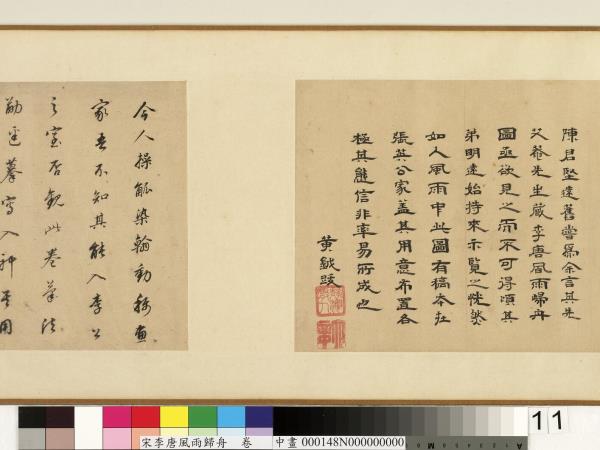 陳君堅遠舊嘗為余言其先
父菴先生藏李唐風雨歸舟
圖亟欲見之而不可得頃其
弟明遠始持來示覽之恍然
如人風雨中此圖有稿本在
張英公家蓋其用意布置各
極其態信非率易所成也
黃鉞跋
今人操觚染翰動稱畫
家者不知其能入李公
之室否觀此卷筆法
11
宋李唐風雨歸舟 卷 中畫 000148N000000000